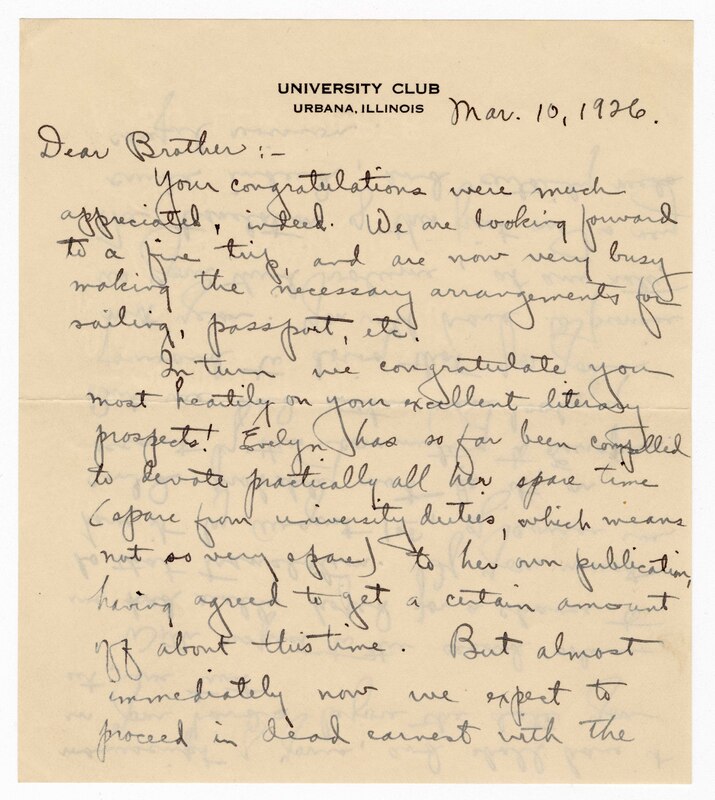 UNIVERSITY CLUB
URBANA, ILLINOIS
Mar. 10, 1926.
Dear Brother :-
Your congratulations were much
appreciated, indeed. We are looking forward
to a fine trip, and are now very busy
making the necessary arrangements for
sailing, passport, etc.
In turn we congratulate you
most heartily on your excellent literary
prospects! Evelyn has so far been compelled
to devote practically all her spare time
(spare from university duties, which means
not so very spare) to her own publication,
having agreed to get a certain amount
off about this time. But almost
immediately now we expect to
proceed in dead earnest with the